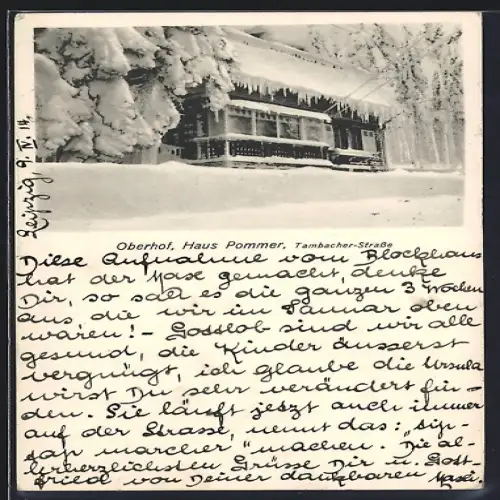 Leipzig 9. IV. 14.
Oberhof, Haus Pommer, Tambacher-Straße
Diese Aufnahme vom Blockhaus
hat der Maxe gemacht, denke
Dir, so sah es die ganzen 3 Wochen
aus die wir im Januar oben
waren! – Gottlob sind wir alle
gesund, die Kinder äusserst
vergnügt, ich glaube die Ursula
wirst Du sehr verändert fin-
den. Sie läuft jetzt auch immer
auf der Strasse, nennt das: „
marcher" machen. Die al-
lerherzlichsten Grüsse Dir u. Gott-
fried von Deiner dankbaren